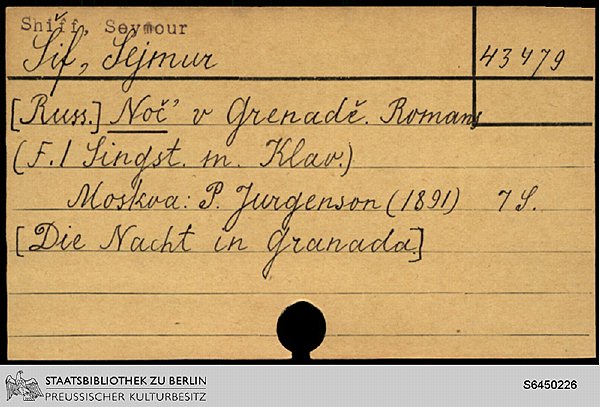 Shiff, Seymour
Šif, Sejmur
43479
[Russ.] Noč' v Grenadě. Romans
(F. 1 Singst. m. Klav.)
Moskva: P. Jurgenson (1891) 7 S.
[Die Nacht in Granada.]
STAATSBIBLIOTHEK ZU BERLIN
PREUSSISCHER KULTURBESITZ
S6450226